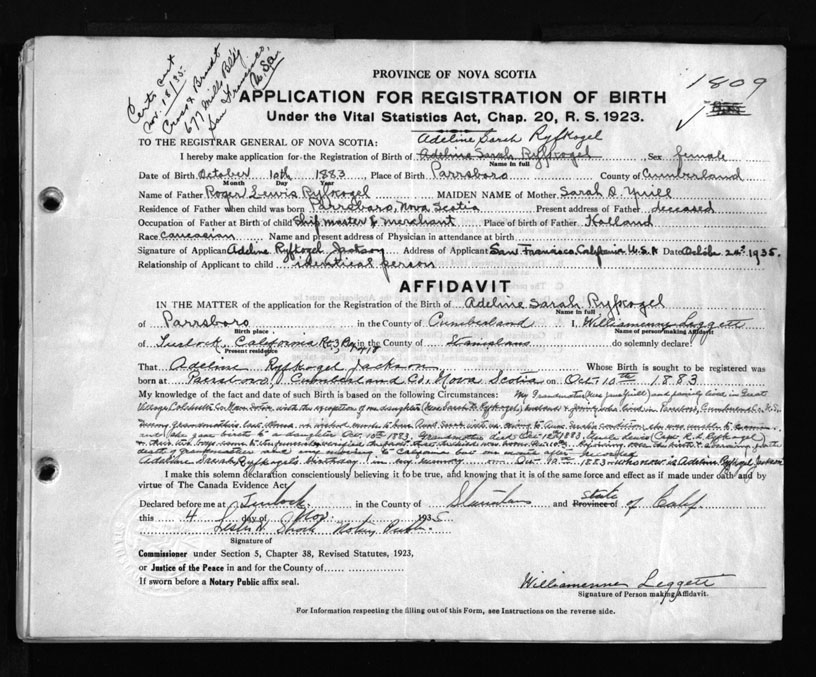 Certs sent
Nov. 18/35.
677 Mills Bldg
San Francisco,
1809
PROVINCE OF NOVA SCOTIA
APPLICATION FOR REGISTRATION OF BIRTH
Under the Vital Statistics Act, Chap. 20, R. S. 1923.
Adeline Sarah Ryfkogel
TO THE REGISTRAR GENERAL OF NOVA SCOTIA:
I hereby make application for the Registration of Birth of Adeline Sarah Ryfkogel Sex female
Name in full
Date of Birth October 10th 1883 Place of Birth Parrsboro County of Cumberland
Month Day Year
Name of Father Roger Lewis Ryfkogel MAIDEN NAME of Mother Sarah D. Yuill
Residence of Father when child was born Parrsboro, Nova Scotia Present address of Father deceased
Occupation of Father at Birth of child Ship master & merchant Place of birth of Father Holland
Race caucasian Name and present address of Physician in attendance at birth
Signature of Applicant Adeline Ryfkogel Jackson Address of Applicant San Francisco, California U.S.A Date October 24th 1935.
Relationship of Applicant to child identical person
AFFIDAVIT
IN THE MATTER of the application for the Registration of the Birth of Adeline Sarah Ryfkogel
Name in full
of Parrsboro in the County of Cumberland I, Williamenne Leggett
Birth place Name of person making Affidavit
of Turlock, California in the County of Stanislaus do solemnly declare:
(Present residence
That Adeline Ryfkogel Jackson Whose Birth is sought to be registered was
born at Parrsboro, Cumberland Co. Nova Scotia on Oct. 10th 1883
My knowledge of the fact and date of such Birth is based on the following Circumstances: My Grandmother (Mrs Jane Yuill) and family lived in Great
Village Colchester Co. Nova Scotia, with the exception of one daughter (Mrs Sarah D. Ryfkogel), husband & family who lived in Parrsboro, Cumberland Co. N.S.
gave birth to a daughter Oct. 10th 1883. Grandmother died Oct 12th 1883, Uncle Lewis (Capt. R. L. Ryfkogel)
death of grandmother and my moving to California
Adeline Sarah Ryfkogel's birthday in my memory Oct 10th 1883 who now is Adeline Ryfkogel Jackson
I make this solemn declaration conscientiously believing it to be true, and knowing that it is of the same force and effect as if made under oath and by
virtue of The Canada Evidence Act.
Declared before me at Turlock in the County of Stanislaus and state Province of of Calif.
this 4 day of Nov 1935
Notary Public
Signature of
Commissioner under Section 5, Chapter 38, Revised Statutes, 1923,
or Justice of the Peace in and for the County of
If sworn before a Notary Public affix seal.
Williamenne Leggett
Signature of Person making Affidavit.
For Information respecting the filling out of this Form, see Instructions on the reverse side.